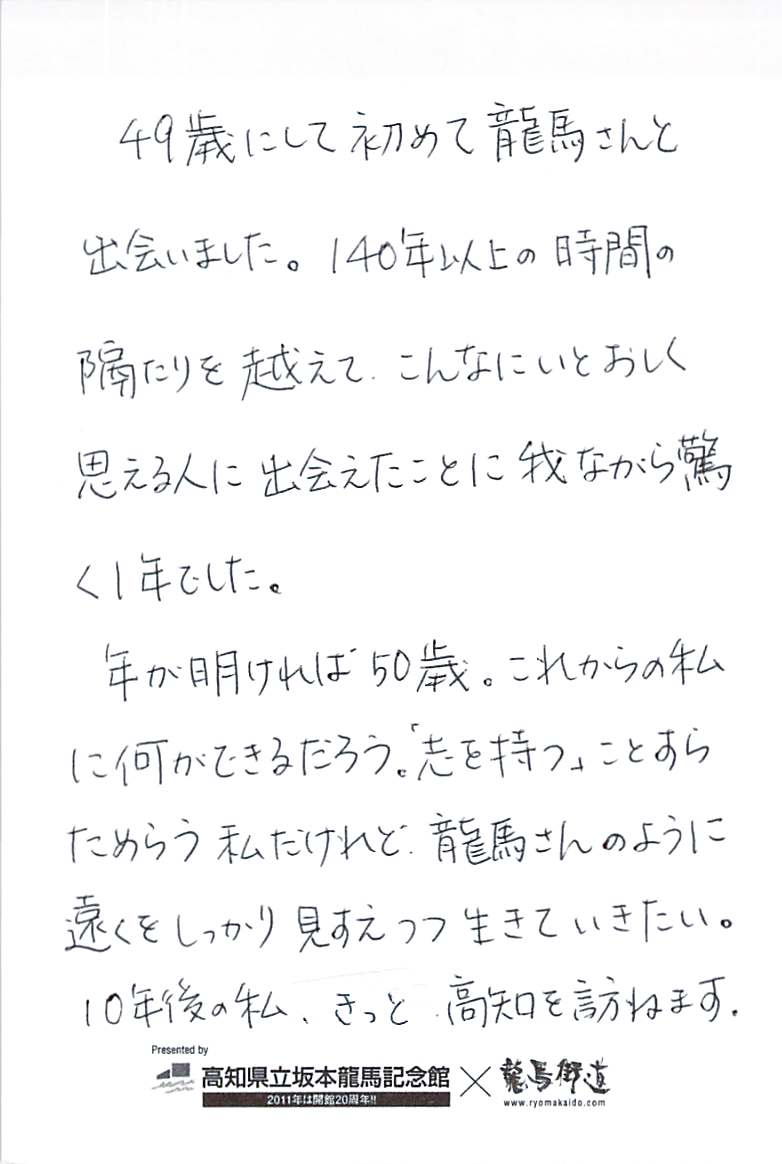 49歳にして初めて龍馬さんと
出会いました。140年以上の時間の
隔たりを越えて、こんなにいとおしく
思える人に出会えたことに我ながら驚
く1年でした。
年が明ければ50歳。これからの私
に何ができるだろう。「志を持つ」ことすら
ためらう私だけれど、龍馬さんのように
遠くをしっかり見すえつつ生きていきたい。
10年後の私、きっと、高知を訪ねます。
Presented by
高知県立坂本龍馬記念館 × 龍馬街道
2011年は開館20周年!!
www.ryomakaido.com